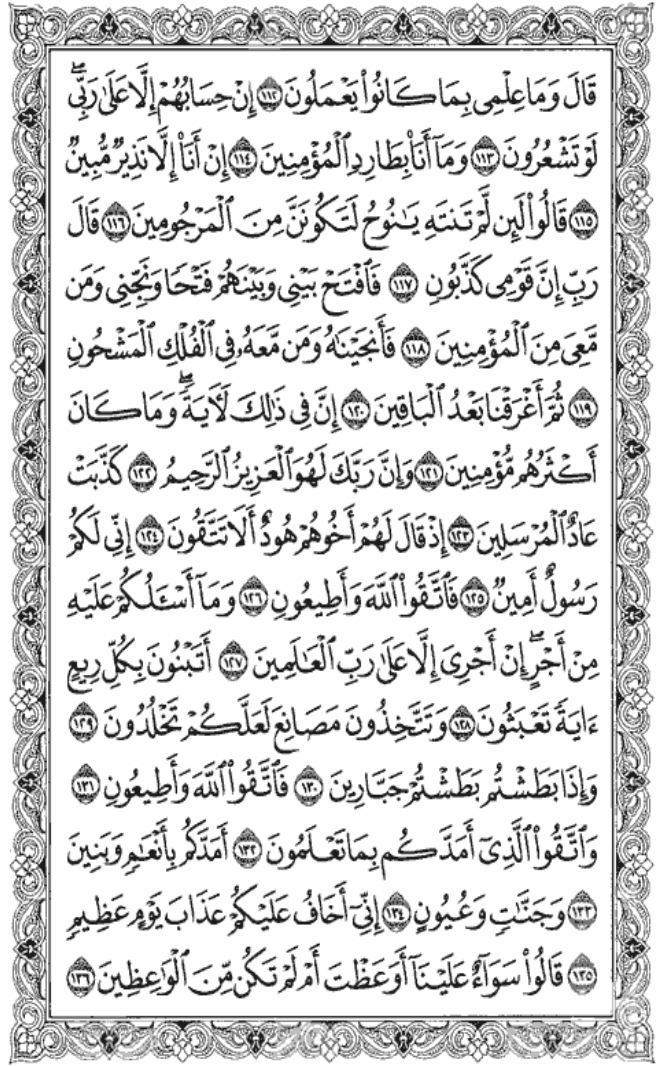 قَالَ وَمَا عِلْمِى بِمَا كَانُوا۟ يَعْمَلُونَ ١١٢ إِنْ حِسَابُهُمْ إِلَّا عَلَىٰ رَبِّىۖ
لَوْ تَشْعُرُونَ ١١٣ وَمَآ أَنَا۠ بِطَارِدِ ٱلْمُؤْمِنِينَ ١١٤ إِنْ أَنَا۠ إِلَّا نَذِيرٌ مُّبِينٌ
١١٥ قَالُوا۟ لَئِن لَّمْ تَنتَهِ يَـٰنُوحُ لَتَكُونَنَّ مِنَ ٱلْمَرْجُومِينَ ١١٦ قَالَ
رَبِّ إِنَّ قَوْمِى كَذَّبُونِ ١١٧ فَٱفْتَحْ بَيْنِى وَبَيْنَهُمْ فَتْحًا وَنَجِّنِى وَمَن
مَّعِىَ مِنَ ٱلْمُؤْمِنِينَ ١١٨ فَأَنجَيْنَـٰهُ وَمَن مَّعَهُۥ فِى ٱلْفُلْكِ ٱلْمَشْحُونِ
١١٩ ثُمَّ أَغْرَقْنَا بَعْدُ ٱلْبَاقِينَ ١٢٠ إِنَّ فِى ذَٰلِكَ لَـَٔايَةًۖ وَمَا كَانَ
أَكْثَرُهُم مُّؤْمِنِينَ ١٢١ وَإِنَّ رَبَّكَ لَهُوَ ٱلْعَزِيزُ ٱلرَّحِيمُ ١٢٢ كَذَّبَتْ
عَادٌ ٱلْمُرْسَلِينَ ١٢٣ إِذْ قَالَ لَهُمْ أَخُوهُمْ هُودٌ أَلَا تَتَّقُونَ ١٢٤ إِنِّى لَكُمْ
رَسُولٌ أَمِينٌ ١٢٥ فَٱتَّقُوا۟ ٱللَّهَ وَأَطِيعُونِ ١٢٦ وَمَآ أَسْـَٔلُكُمْ عَلَيْهِ
مِنْ أَجْرٍۖ إِنْ أَجْرِىَ إِلَّا عَلَىٰ رَبِّ ٱلْعَـٰلَمِينَ ١٢٧ أَتَبْنُونَ بِكُلِّ رِيعٍ
ءَايَةً تَعْبَثُونَ ١٢٨ وَتَتَّخِذُونَ مَصَانِعَ لَعَلَّكُمْ تَخْلُدُونَ ١٢٩
وَإِذَا بَطَشْتُم بَطَشْتُمْ جَبَّارِينَ ١٣٠ فَٱتَّقُوا۟ ٱللَّهَ وَأَطِيعُونِ ١٣١
وَٱتَّقُوا۟ ٱلَّذِىٓ أَمَدَّكُم بِمَا تَعْلَمُونَ ١٣٢ أَمَدَّكُم بِأَنْعَـٰمٍ وَبَنِينَ
١٣٣ وَجَنَّـٰتٍ وَعُيُونٍ ١٣٤ إِنِّىٓ أَخَافُ عَلَيْكُمْ عَذَابَ يَوْمٍ عَظِيمٍ
١٣٥ قَالُوا۟ سَوَآءٌ عَلَيْنَآ أَوَعَظْتَ أَمْ لَمْ تَكُن مِّنَ ٱلْوَٰعِظِينَ ١٣٦